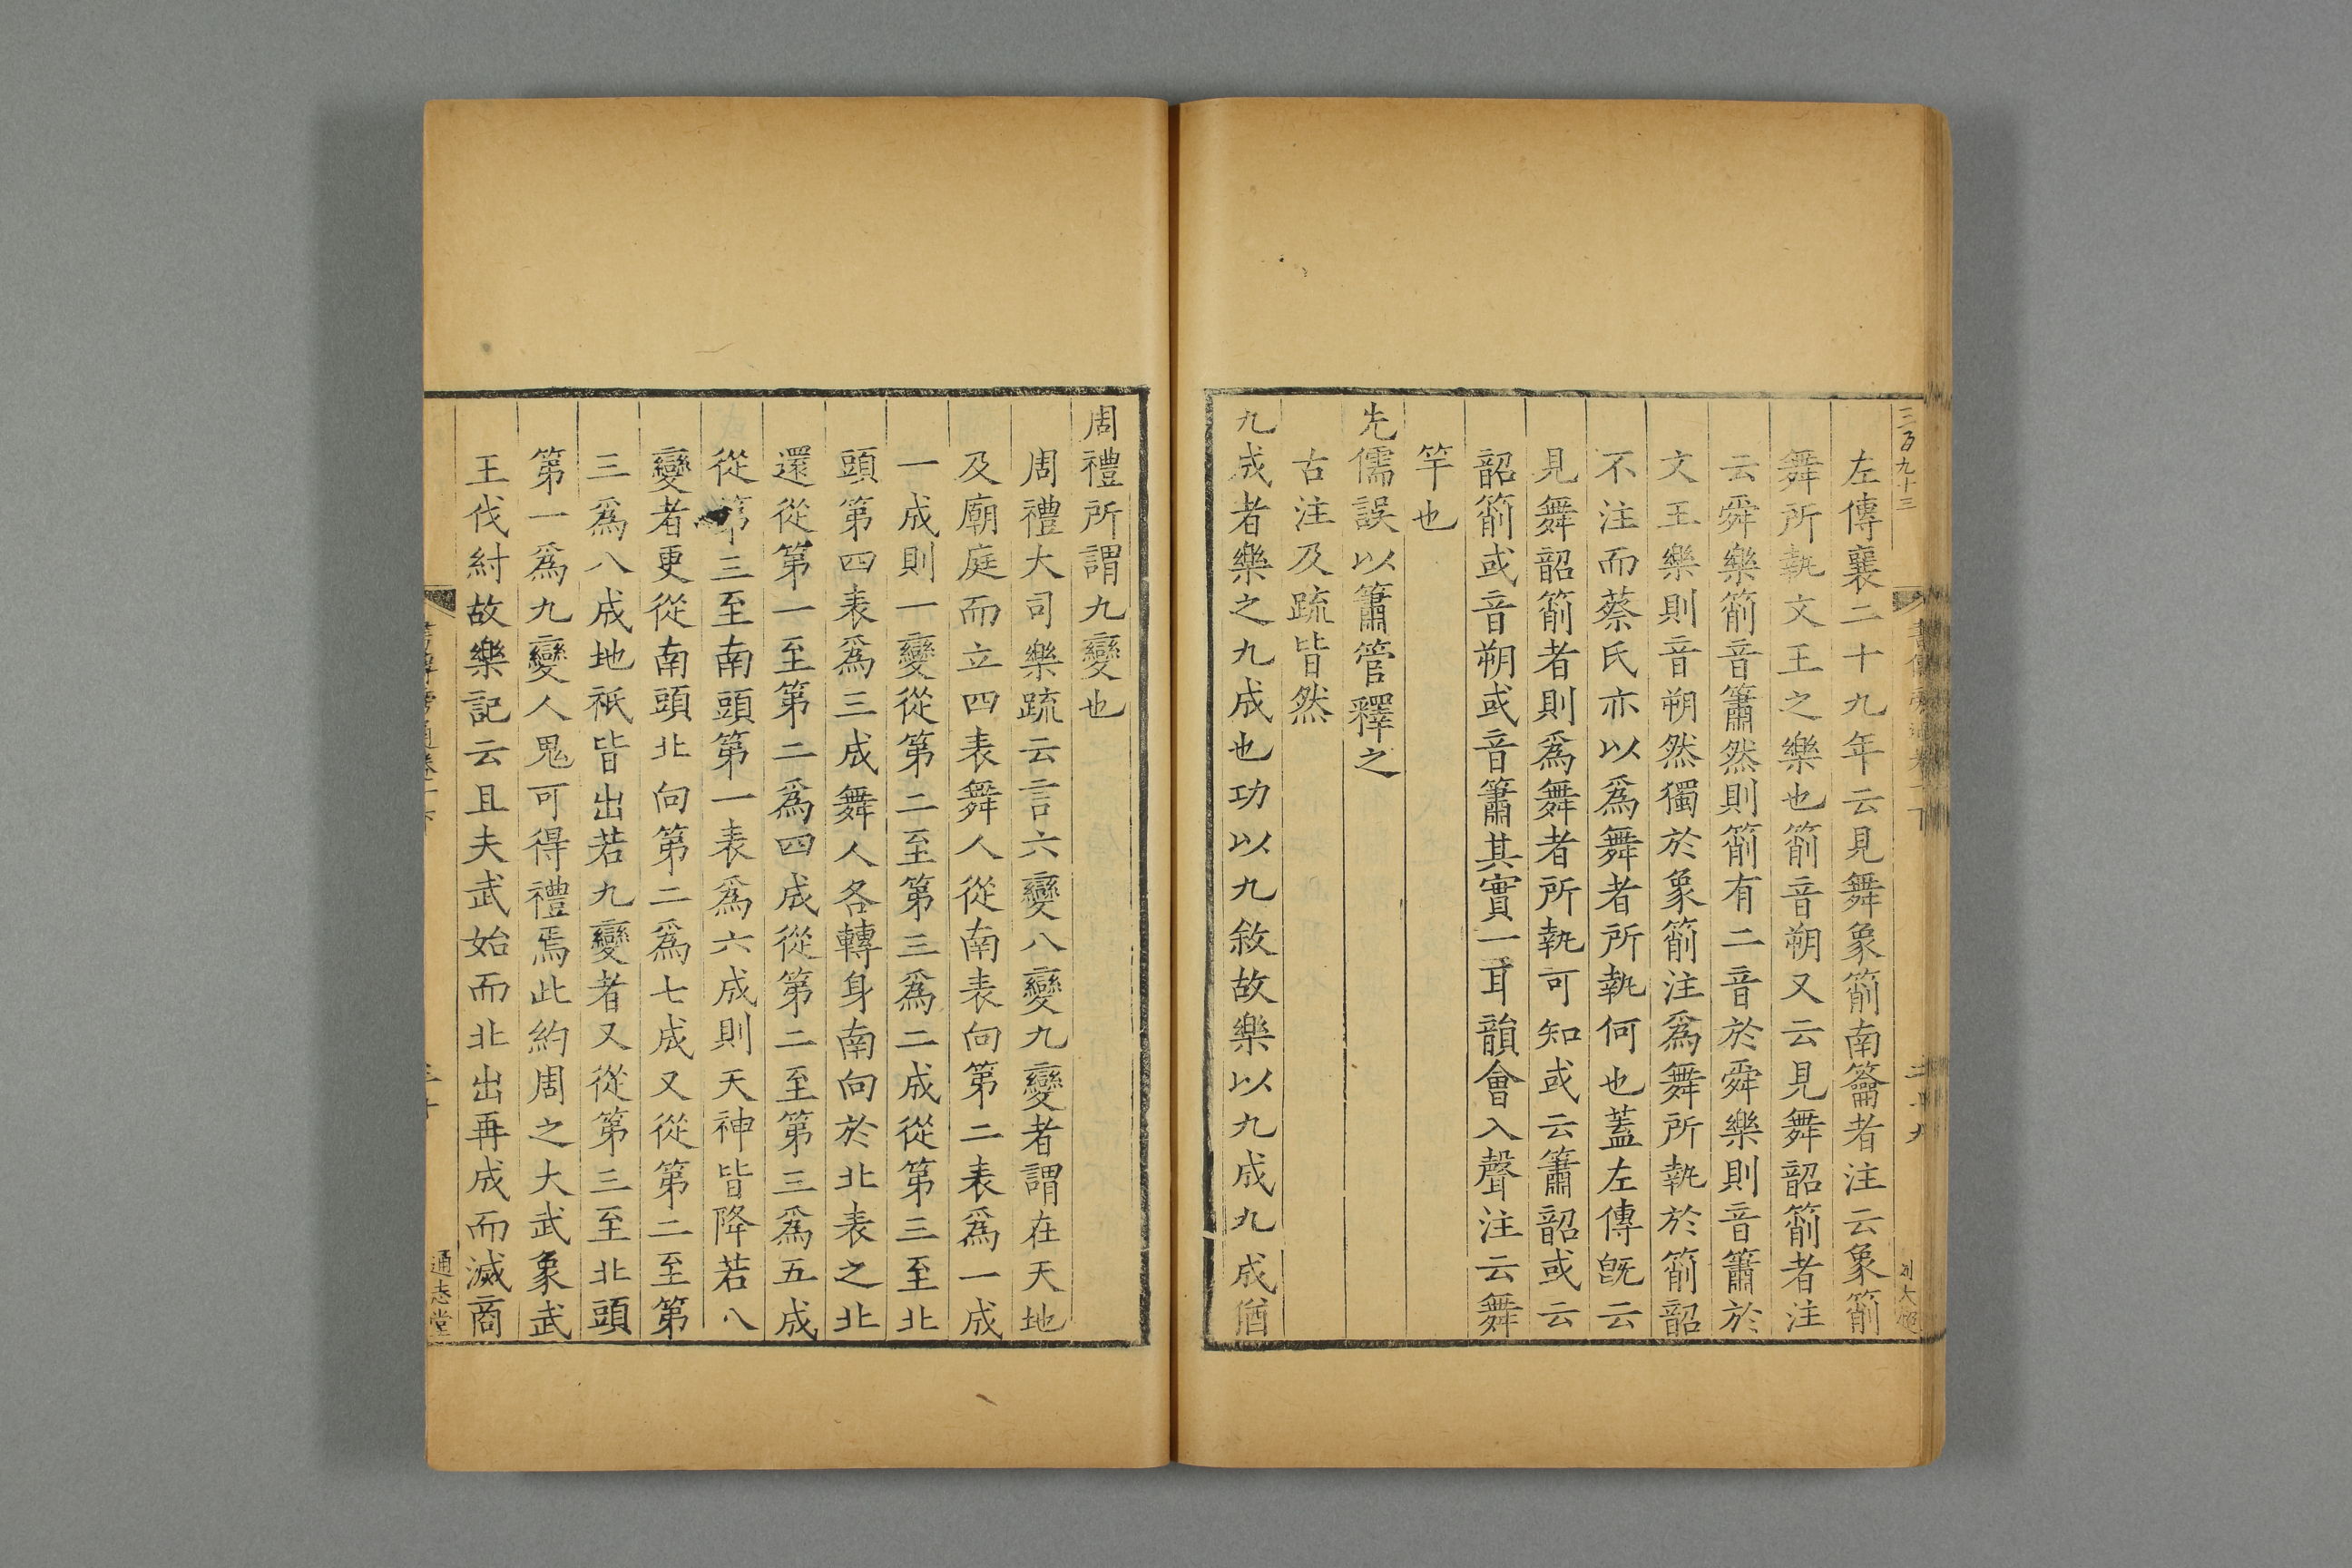 三百九十三
左傳襄二十九年云見舞象箾南籥者注云象箾
舞所執文王之樂也箾音朔又云見舞韶箾者注
云舜樂箾音簫然則箾有二音於舜樂則音簫於
文王樂則音朔然獨於象箾注爲舞所執於箾韶
不注而蔡氏亦以爲舞者所執何也蓋左傳旣云
見舞韶箾者則爲舞者所執可知或云簫韶或云
韶箾或音朔或音簫其實一耳韻會入聲注云舞
竿也
先儒誤以簫管釋之
古注及疏皆然
九成者樂之九成也功以九敘故樂以九成九成猶
周禮所謂九變也
周禮大司樂疏云言六變八變九變者謂在天地
及廟庭而立四表舞人從南表向第二表爲一成
一成則一變從第二至第三爲二成從第三至北
頭第四表爲三成舞人各轉身南向於北表之北
還從第一至第二爲四成從第二至第三爲五成
從第三至南頭第一表爲六成則天神皆降若八
變者更從南頭北向第二爲七成又從第二至第
三爲八成地祇皆出若九變者又從第三至北頭
第一爲九變人鬼可得禮焉此約周之大武象武
王伐紂故樂記云且夫武始而北出再成而滅商
通志堂